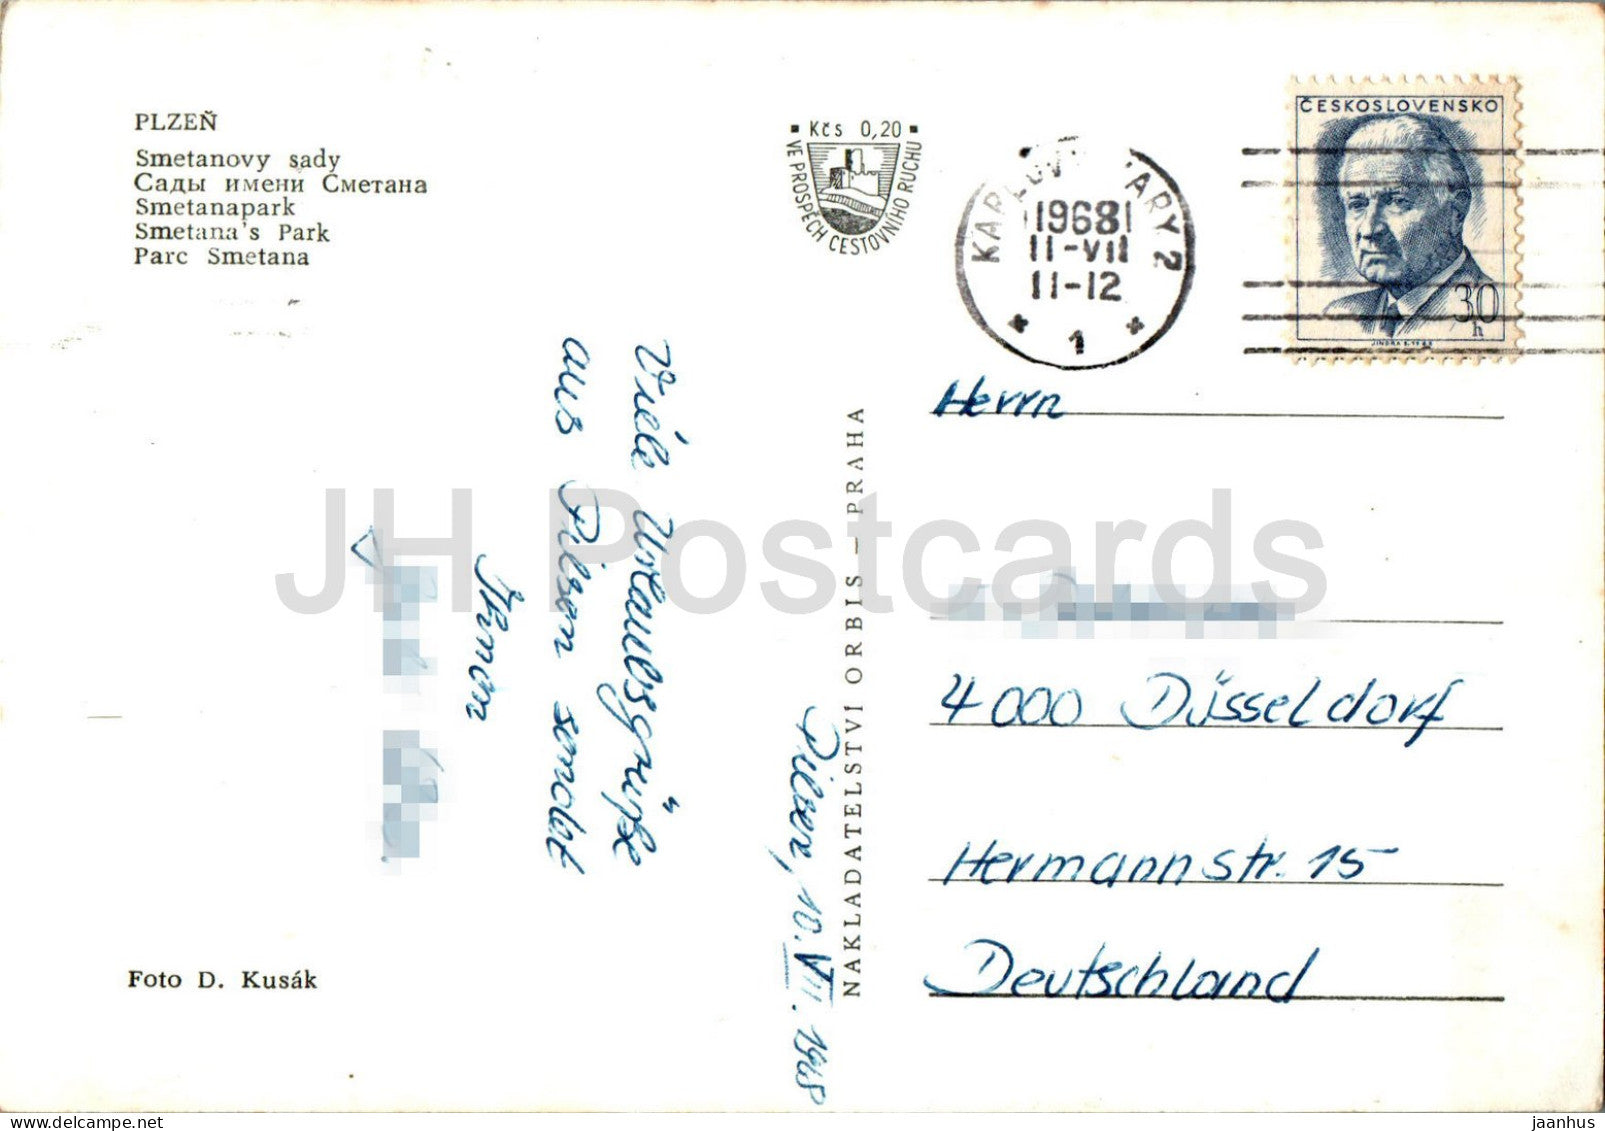 PLZEŇ
Smetanovy sady
Сады имени Сметана
Smetanapark
Smetana's Park
Parc Smetana
Kčs 0,20
VE PROSPĚCH CESTOVNÍHO RUCHU
KARLOVY VARY 2
1968
11-VII
11-12
1
ČESKOSLOVENSKO
30
h
JINDRA S. 1968
Pilsen, 10.VII.1968
Viele Urlaubsgrüße
aus Pilsen sendet
Ihnen
Herrn
4000 Düsseldorf
Hermannstr. 15
Deutschland
NAKLADATELSTVÍ ORBIS — PRAHA
Foto D. Kusák
JH Postcards
jaanhus
delcampe.net